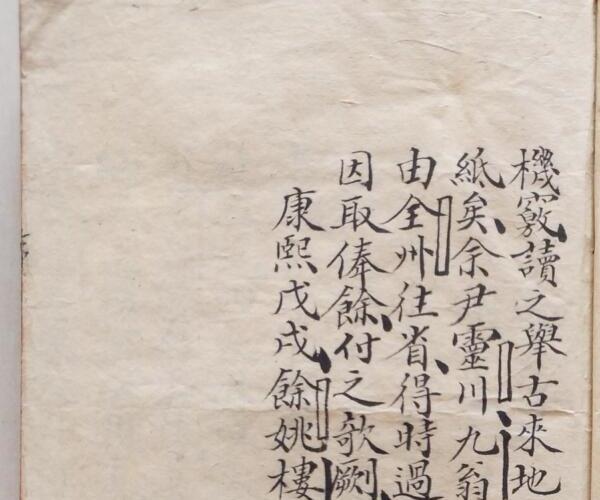 機竅讀之舉古來地
紙矣余尹靈川九翁
由全州往省得時過
因取俸餘付之欹劂
康熙戊戌餘姚樓